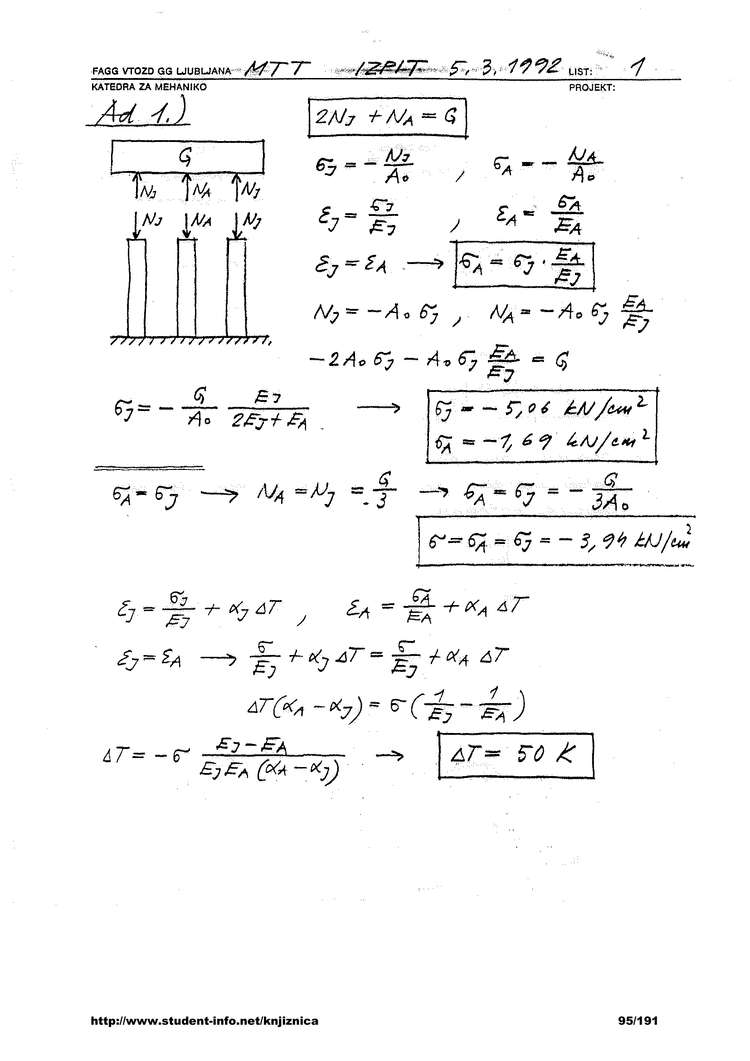 FAGG VTOZD GG LJUBLJANA MTT IZPIT 5.3.1992 LIST: 1
KATEDRA ZA MEHANIKO PROJEKT:
Ad 1.)
2N_J + N_A = G
G
N_J N_A N_J
N_J N_A N_J
σ_J = - N_J/A_0 , σ_A = - N_A/A_0
ε_J = σ_J/E_J , ε_A = σ_A/E_A
ε_J = ε_A → σ_A = σ_J · E_A/E_J
N_J = -A_0 σ_J , N_A = -A_0 σ_J E_A/E_J
-2A_0 σ_J - A_0 σ_J E_A/E_J = G
σ_J = - G/A_0 E_J/(2E_J + E_A) → σ_J = -5,06 kN/cm²
σ_A = -1,69 kN/cm²
σ_A = σ_J → N_A = N_J = G/3 → σ_A = σ_J = - G/3A_0
σ = σ_A = σ_J = -3,94 kN/cm²
ε_J = σ_J/E_J + α_J ΔT , ε_A = σ_A/E_A + α_A ΔT
ε_J = ε_A → σ/E_J + α_J ΔT = σ/E_J + α_A ΔT
ΔT(α_A - α_J) = σ(1/E_J - 1/E_A)
ΔT = -σ (E_J - E_A)/(E_J E_A (α_A - α_J)) → ΔT = 50 K
http://www.student-info.net/knjiznica 95/191